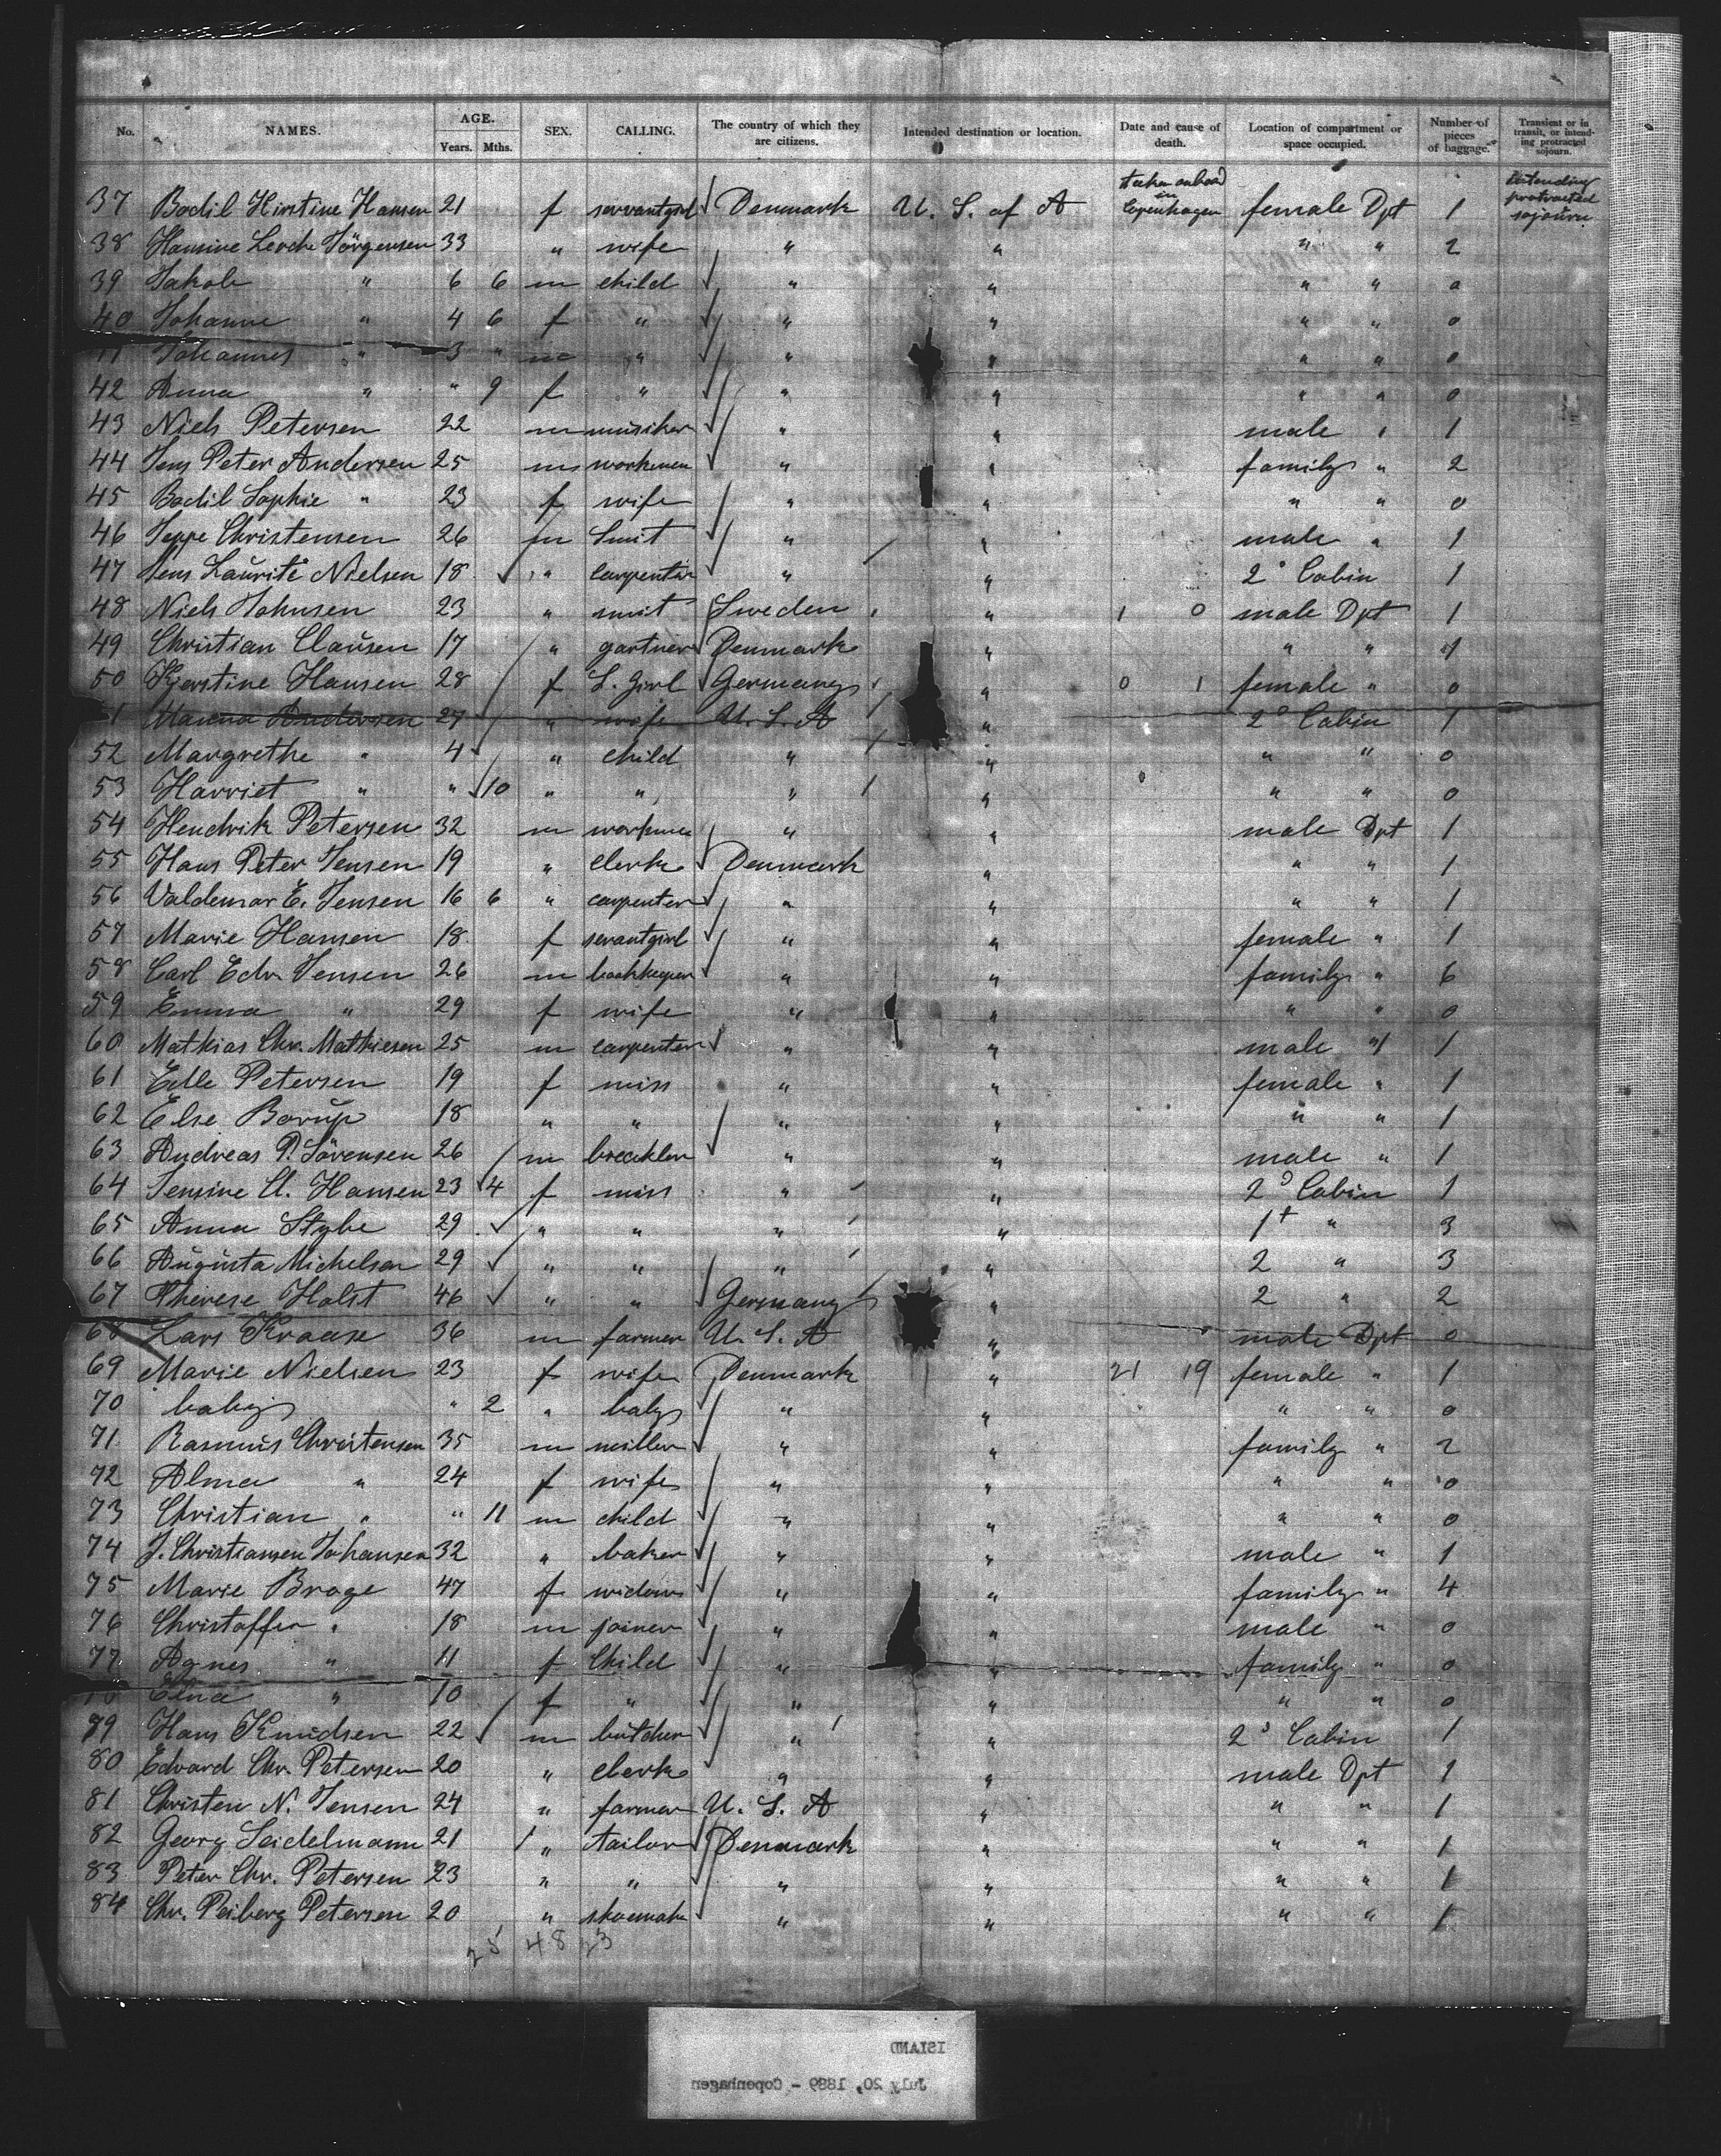 No. NAMES. AGE. Years. Mths. SEX. CALLING. The country of which they are citizens. Intended destination or location. Date and cause of death. Location of compartment or space occupied. Number of pieces of baggage. Transient or in transit, or intending protracted sojourn.
37 Bodil Kirstine Hansen 21 f servantgirl Denmark U. S. of A taken onboard in Copenhagen female Dpt 1 Intending protracted sojourn
38 Hansine Lerche Jörgensen 33 " wife " " " " 2
39 Jakob " 6 6 m child " " " " 0
40 Johanne " 4 6 f " " " " " 0
41 Johannes " 3 " m " " " " " 0
42 Anna " " 9 f " " " " " 0
43 Niels Petersen 22 m musiker " " male " 1
44 Jens Peter Andersen 25 m workmen " " family " 2
45 Bodil Sophie " 23 f wife " " " " 0
46 Jeppe Christensen 26 m Smit " " male " 1
47 Jens Lauritz Nielsen 18 " carpenter " " 2° Cabin 1
48 Niels Johnsen 23 " smit Sweden " 1 0 male Dpt 1
49 Christian Clausen 17 " gartner Denmark " " " 1
50 Kjerstine Hansen 28 f S. Girl Germany " 0 1 female " 0
51 Andersen 27 " wife U. S. A " 2° Cabin 1
52 Margrethe " 4 " child " " " " 0
53 Harriet " " 10 " " " " " " 0
54 Hendrik Petersen 32 m workmen " " male Dpt 1
55 Hans Peter Jensen 19 " clerk Denmark " " " 1
56 Valdemar E. Jensen 16 6 " carpenter " " " " 1
57 Marie Hansen 18 f servantgirl " " female " 1
58 Carl Edv. Jensen 26 m bookkeeper " " family " 6
59 Emma " 29 f wife " " " " 0
60 Mathias Chr. Mathiesen 25 m carpenter " " male " 1
61 Edle Petersen 19 f miss " " female " 1
62 Else Borup 18 " " " " " " 1
63 Andreas P. Sörensen 26 m " " male " 1
64 Jensine Cl. Hansen 23 4 f miss " " 2° Cabin 1
65 Anna Stybe 29 " " " " 1st " 3
66 Augusta Michelsen 29 " " " " 2 " 3
67 Therese Holst 46 " " Germany " 2 " 2
68 Lars Kraase 36 m farmer U. S. A " male Dpt 0
69 Marie Nielsen 23 f wife Denmark " 21 19 female " 1
70 baby " 2 " baby " " " " 0
71 Rasmus Christensen 35 m miller " " family " 2
72 Alma " 24 f wife " " " " 0
73 Christian " " 11 m child " " " " 0
74 J. Christiansen Johansen 32 " baker " " male " 1
75 Marie Brage 47 f widow " " family " 4
76 Christoffer " 18 m joiner " " male " 0
77 Agnes " 11 f Child " " family " 0
78 Elna " 10 f " " " " " 0
79 Hans Knudsen 22 m butcher " " 2° Cabin 1
80 Edvard Chr. Petersen 20 " clerk " " male Dpt 1
81 Christen N. Jensen 24 " farmer U. S. A " " " 1
82 Georg Seidelmann 21 " tailor Denmark " " " 1
83 Peter Chr. Petersen 23 " " " " " " 1
84 Chr. Peiberg Petersen 20 " shoemaker " " " " 1
25 48 23
ISLAND
July 20, 1889 - Copenhagen